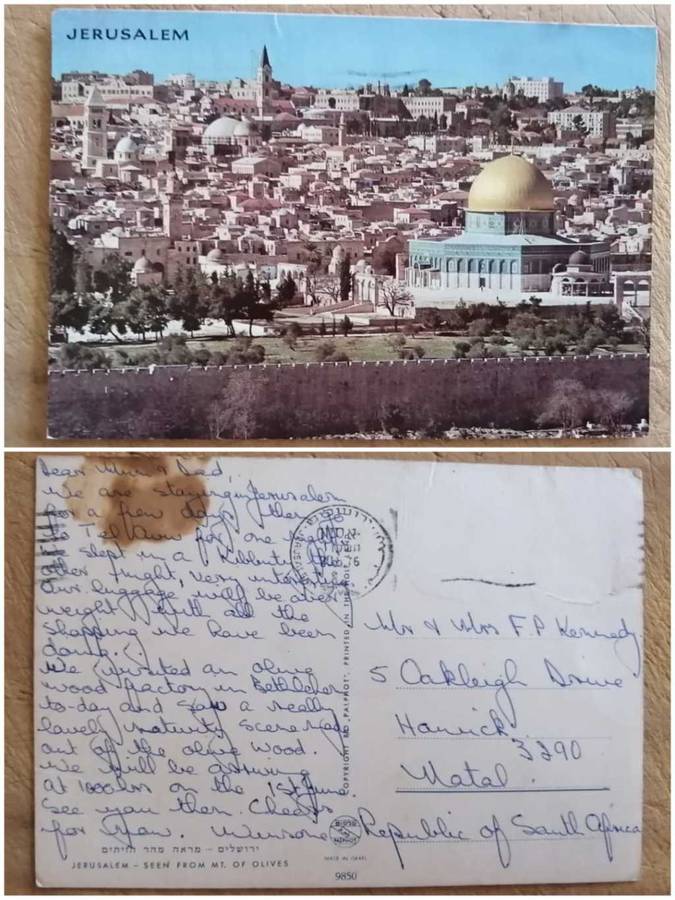 JERUSALEM
Dear Mum & Dad,
We are staying in Jerusalem
for a few days then go
to Tel Aviv for one night
Slept in a Kibbutz the
other night, very interesting
Our luggage will be over
weight with all the
shopping we have been
doing.
We visited an olive
wood factory in Bethlehem
to-day and saw a really
lovely nativity scene made
out of the olive wood.
We will be arriving
at 1000hrs on the 1st June.
See you then. Cheers
for now.
ירושלים – מראה מהר הזיתים
JERUSALEM – SEEN FROM MT. OF OLIVES
COPYRIGHT BY "PALPHOT", PRINTED IN THE HOLY
MADE IN ISRAEL
9850
Mr & Mrs F.P Kennedy
5 Oakleigh Drive
Howick
3290
Natal.
Republic of South Africa